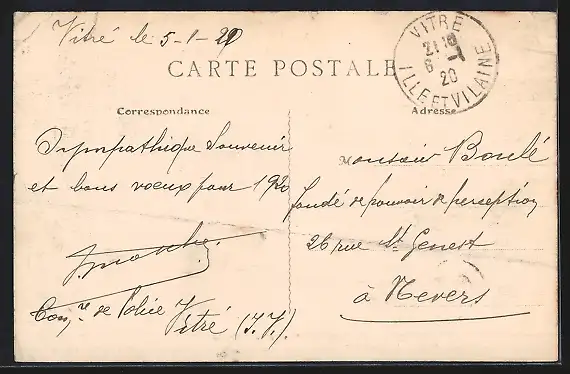 Vitré le 5-1-20
CARTE POSTALE
VITRE
21 15
6 -1
20
ILLE ET VILAINE
Correspondance
Adresse
Sympathique Souvenir
et bons voeux pour 1920
Com.re de Police Vitré (I.V.).
Monsieur Boulé
fondé de pouvoir de perception
26 rue St Genest
à Nevers